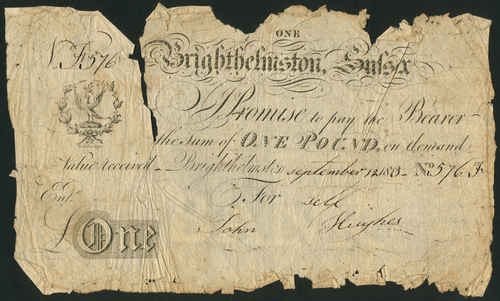 ONE
No. F576 Brighthelmston, Sussex
I Promise to pay the Bearer
the Sum of ONE POUND, on demand
Value received - Brighthelmston september 12 1813 - No. 576 F
Entd. For self
John Hughes
£ One